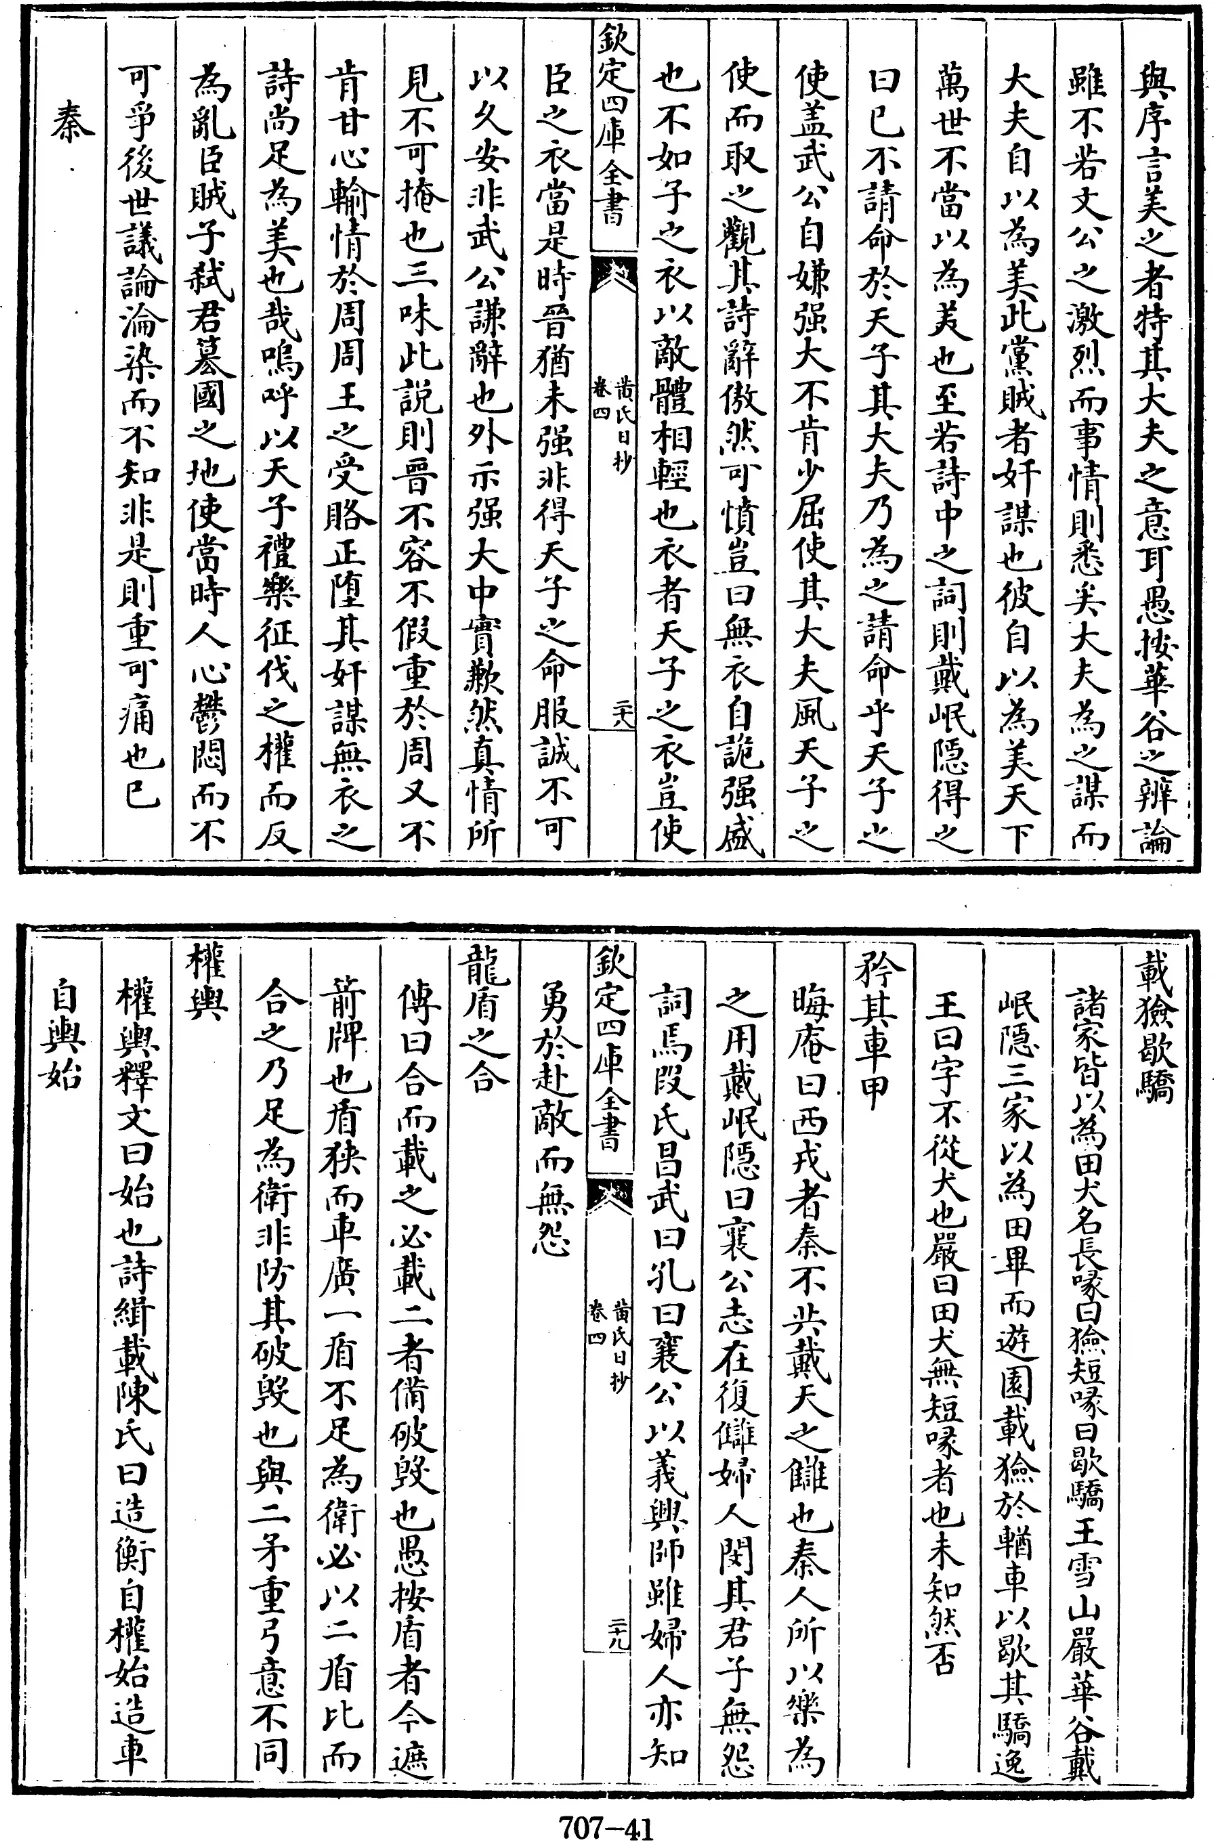 與序言美之者特其大夫之意耳愚按華谷之辨論
雖不若文公之激烈而事情則悉矣大夫為之謀而
大夫自以為美此黨賊者奸謀也彼自以為美天下
萬世不當以為美也至若詩中之詞則戴岷隱得之
曰已不請命於天子其大夫乃為之請命乎天子之
使蓋武公自嫌强大不肯少屈使其大夫風天子之
使而取之觀其詩辭傲然可憤豈曰無衣自詭强盛
也不如子之衣以敵體相輕也衣者天子之衣豈使
欽定四庫全書
黄氏日抄
卷四
二十八
臣之衣當是時晉猶未强非得天子之命服誠不可
以久安非武公謙辭也外示强大中實歉然真情所
見不可掩也三味此説則晉不容不假重於周又不
肯甘心輸情於周周王之受賂正墮其奸謀無衣之
詩尚足為美也哉嗚呼以天子禮樂征伐之權而反
為亂臣賊子弑君簒國之地使當時人心鬱悶而不
可爭後世議論淪染而不知非是則重可痛也已
秦
載獫歇驕
諸家皆以為田犬名長喙曰獫短喙曰歇驕王雪山嚴華谷戴
岷隱三家以為田畢而遊園載獫於輶車以歇其驕逸
王曰字不從犬也嚴曰田犬無短喙者也未知然否
矜其車甲
晦庵曰西戎者秦不共戴天之讎也秦人所以樂為
之用戴岷隱曰襄公志在復讎婦人閔其君子無怨
詞焉段氏昌武曰孔曰襄公以義興師雖婦人亦知
欽定四庫全書
黄氏日抄
卷四
二十九
勇於赴敵而無怨
龍盾之合
傳曰合而載之必載二者備破毁也愚按盾者今遮
箭牌也盾狹而車廣一盾不足為衛必以二盾比而
合之乃足為衛非防其破毁也與二矛重弓意不同
權輿
權輿釋文曰始也詩緝載陳氏曰造衡自權始造車
自輿始
707-41